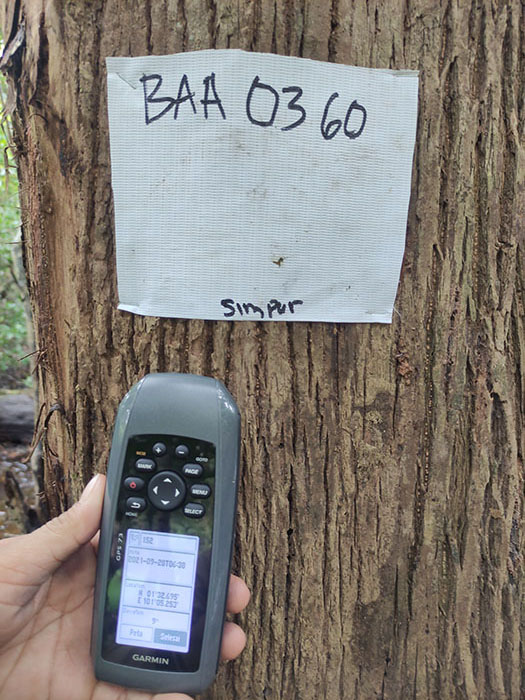 BAA 0360
simpur
MOB
GOTO
MARK
PAGE
MENU
SELECT
HOME
GPS 73
152
2021-09-20T06:30
N 01°32.695'
E 101°05.253'
Peta
Selesai
GARMIN